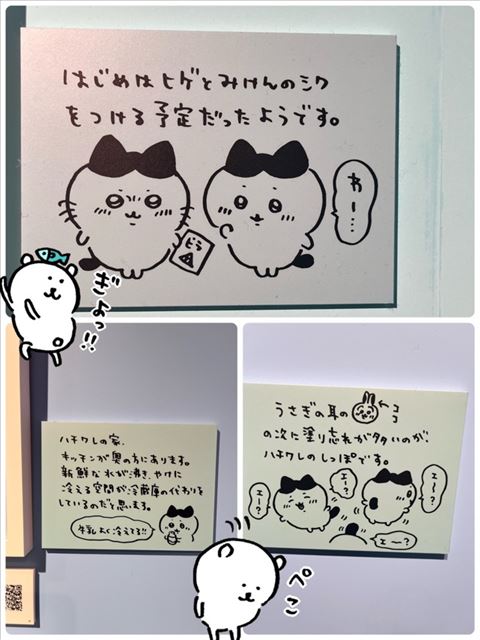 はじめはヒゲとみけんのシワ
をつける予定だったようです。
わー…
ビラ
ぎょっ!!
ハチワレの家、
キッチンが奥の方にあります。
新鮮な氷が沸き、やけに
冷える空間が冷蔵庫の代わりを
しているのだと思います。
牛乳よく冷えてる!!
うさぎの耳の
ココ
の次に塗り忘れが多いのが、
ハチワレのしっぽです。
エー?
エー?
エー?
エ〜?
ぺこ